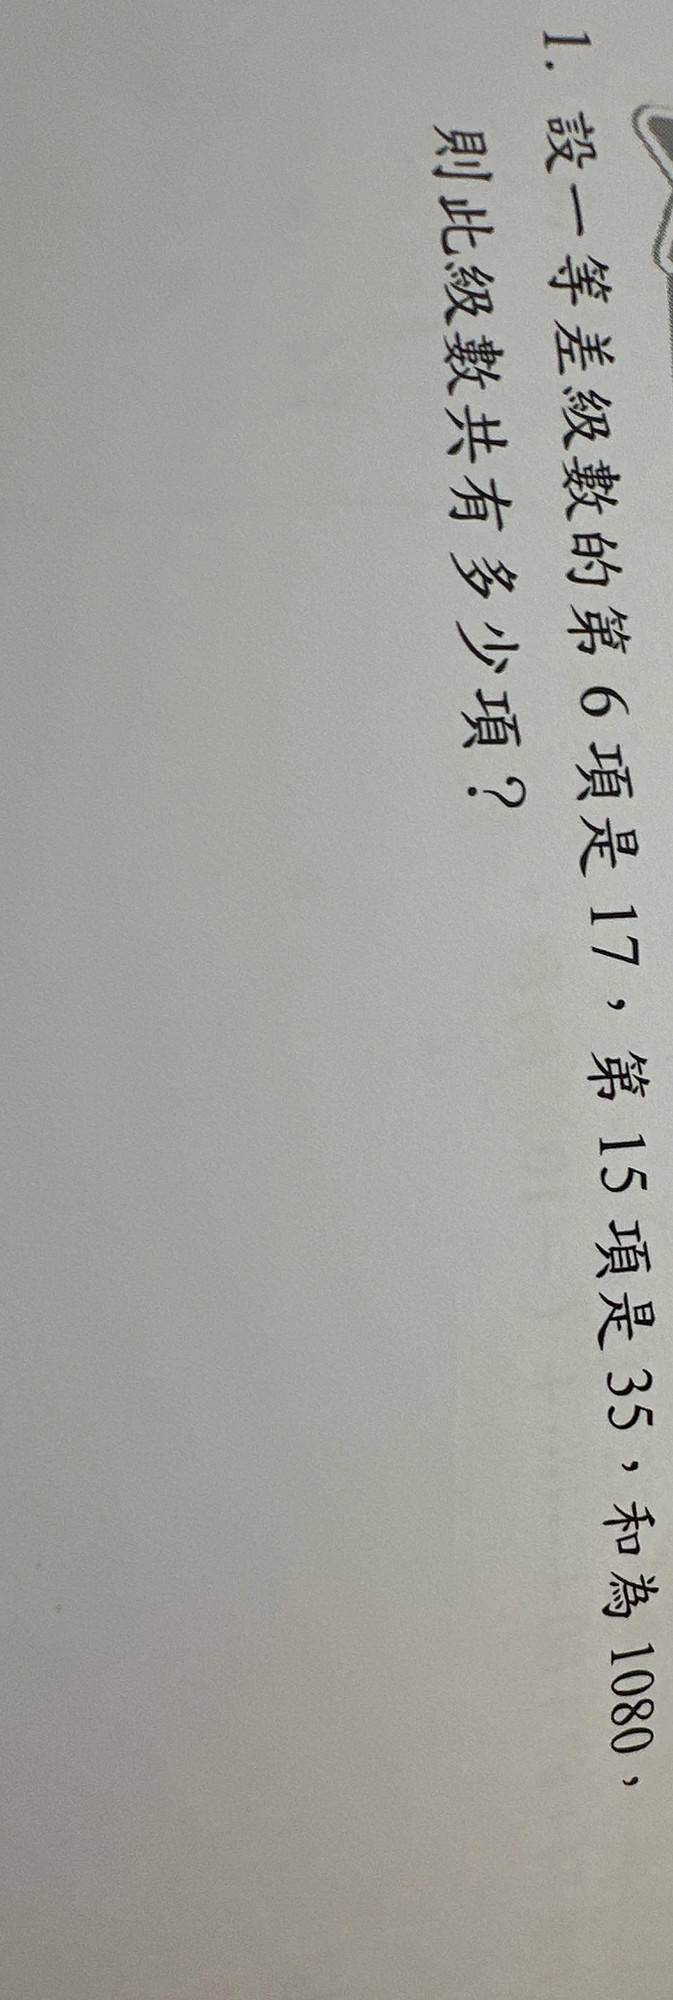 1. 設一等差級數的第6項是17，第15項是35，和為1080，
則此級數共有多少項？